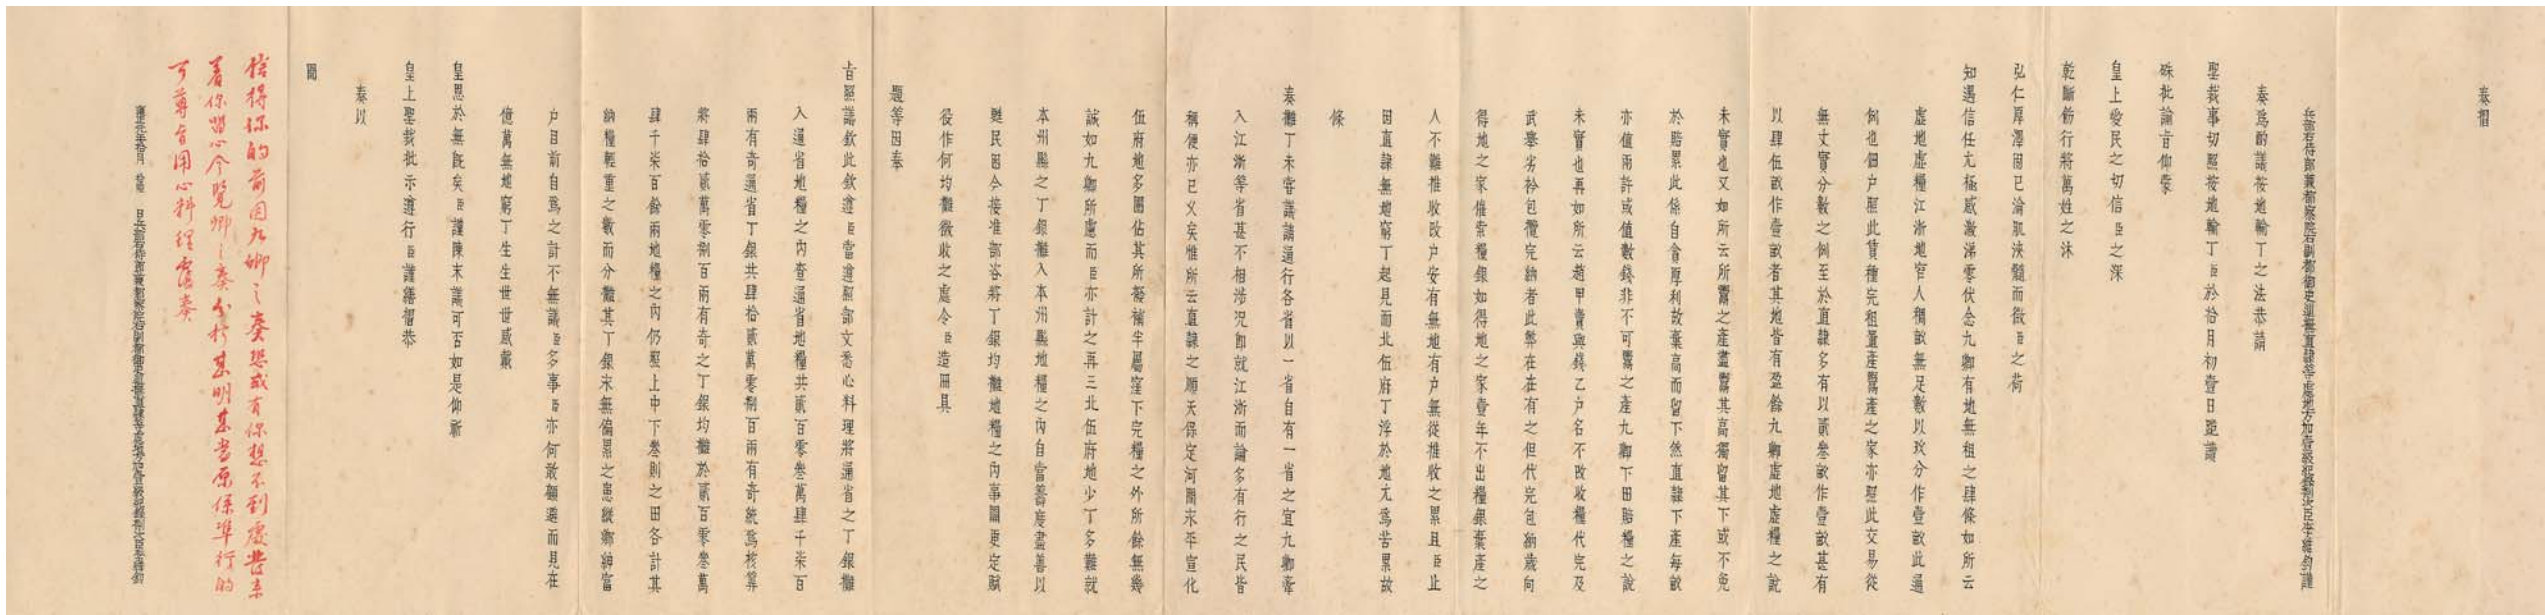 奏摺
兵部右侍郎兼都察院右副都御史巡撫直隸等處地方加壹級紀錄貳次臣李維鈞謹
奏為酌議按地輸丁之法恭請
聖裁事切照按地輸丁臣於拾月初壹日跪讀
硃批諭旨仰蒙
皇上愛民之切信臣之深
乾斷飭行將萬姓之沐
弘仁厚澤固已淪肌浹髓而微臣之荷
知遇信任尤極感激涕零伏念九卿有地無租之肆條如所云
虛地虛糧江浙地窄人稠畝無足數以玖分作壹畝此通
例也佃户照此賃種完租置產鬻產之家亦照此交易從
無丈實分數之例至於直隸多有以貳叁畝作壹畝甚有
以肆伍畝作壹畝者其地皆有盈餘九卿虛地虛糧之說
未實也又如所云所鬻之產盡鬻其高獨留其下或不免
於賠累此係自貪厚利故棄高而留下然直隸下產每畝
亦值兩許或值數錢非不可鬻之產九卿下田賠糧之說
未實也再如所云趙甲賣與錢乙户名不改收糧代完及
武舉劣衿包攬完納者此弊在在有之但代完包納歲向
得地之家催索糧銀如得地之家壹年不出糧銀棄產之
人不難推收改户安有無地有户無從推收之累且臣止
因直隸無地窮丁起見而北伍府丁浮於地尤為苦累故
條
奏攤丁未嘗議請通行各省以一省自有一省之宜九卿牽
入江浙等省甚不相涉况即就江浙而論多有行之民皆
稱便亦已乂矣惟所云直隸之順天保定河間永平宣化
伍府地多圈佔其所撥補半屬窪下完糧之外所餘無幾
誠如九卿所慮而臣亦計之再三北伍府地少丁多難就
本州縣之丁銀攤入本州縣地糧之內自當籌度盡善以
甦民困今接准部咨將丁銀均攤地糧之內事關更定賦
役作何均攤徵收之處令臣造冊具
題等因奉
旨照議欽此欽遵臣當遵照部文悉心料理將通省之丁銀攤
入通省地糧之內查通省地糧共貳百零叁萬肆千柒百
兩有奇通省丁銀共肆拾貳萬零捌百兩有奇統為核算
將肆拾貳萬零捌百兩有奇之丁銀均攤於貳百零叁萬
肆千柒百餘兩地糧之內仍照上中下叁則之田各計其
納糧輕重之數而分攤其丁銀末無偏累之患縱鄉紳富
户目前自為之計不無議臣多事臣亦何敢顧避而見在
億萬無地窮丁生生世世感戴
皇恩於無既矣臣謹陳末議可否如是仰祈
皇上聖裁批示遵行臣謹繕摺恭
奏以
聞
信得你的前因九卿之奏恐或有你想不到處
著你留心今覽卿之奏分析甚明甚當原係準行的
可尊旨用心料理